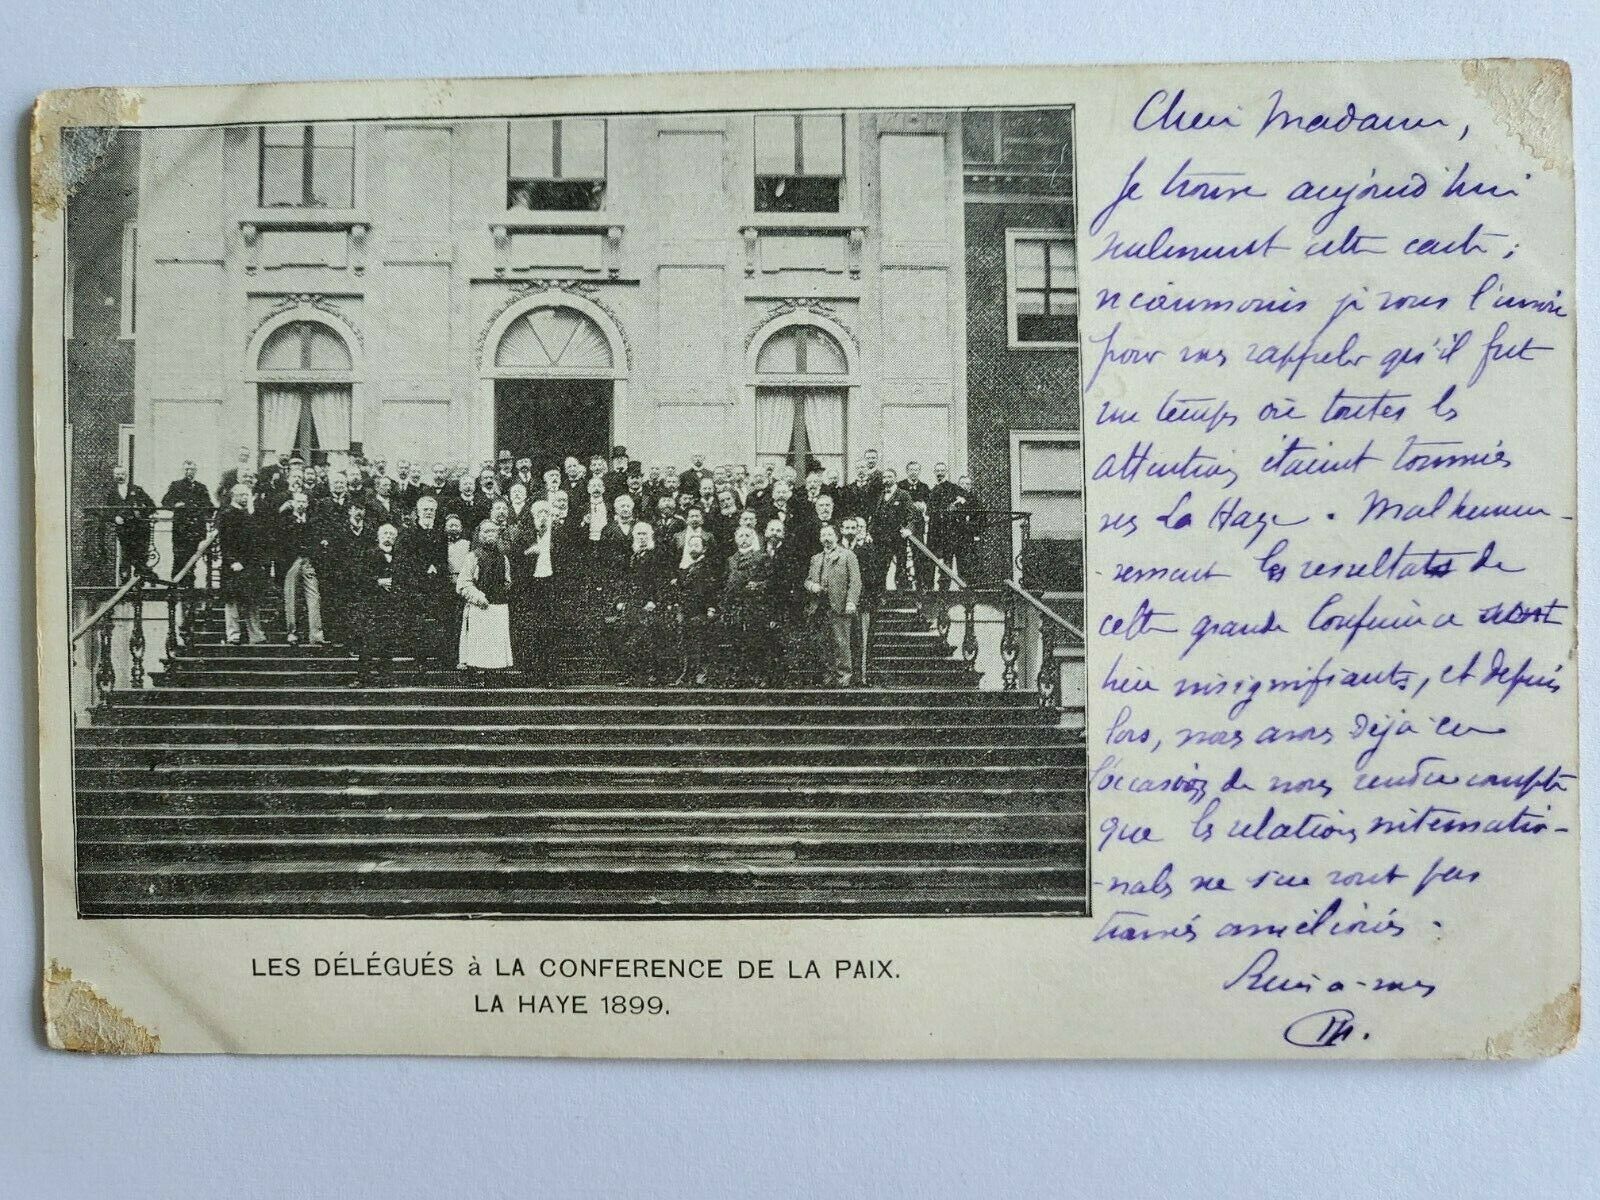 LES DÉLÉGUÉS à LA CONFERENCE DE LA PAIX.
LA HAYE 1899.
Cher Madame,
Je trouve aujourd'hui
seulement cette carte;
néanmoins je vous l'envoie
pour vous rappeler qu'il fut
un temps où toutes les
attentions étaient tournées
vers La Haye. Malheureu-
-sement les resultats de
cette grande Conférence sont
bien insignifiants, et depuis
lors, nous avons déjà eu
l'occasion de nous rendre compte
que les relations internatio-
-nales ne s'en sont pas
trouvés améliorés.
Bien à vous